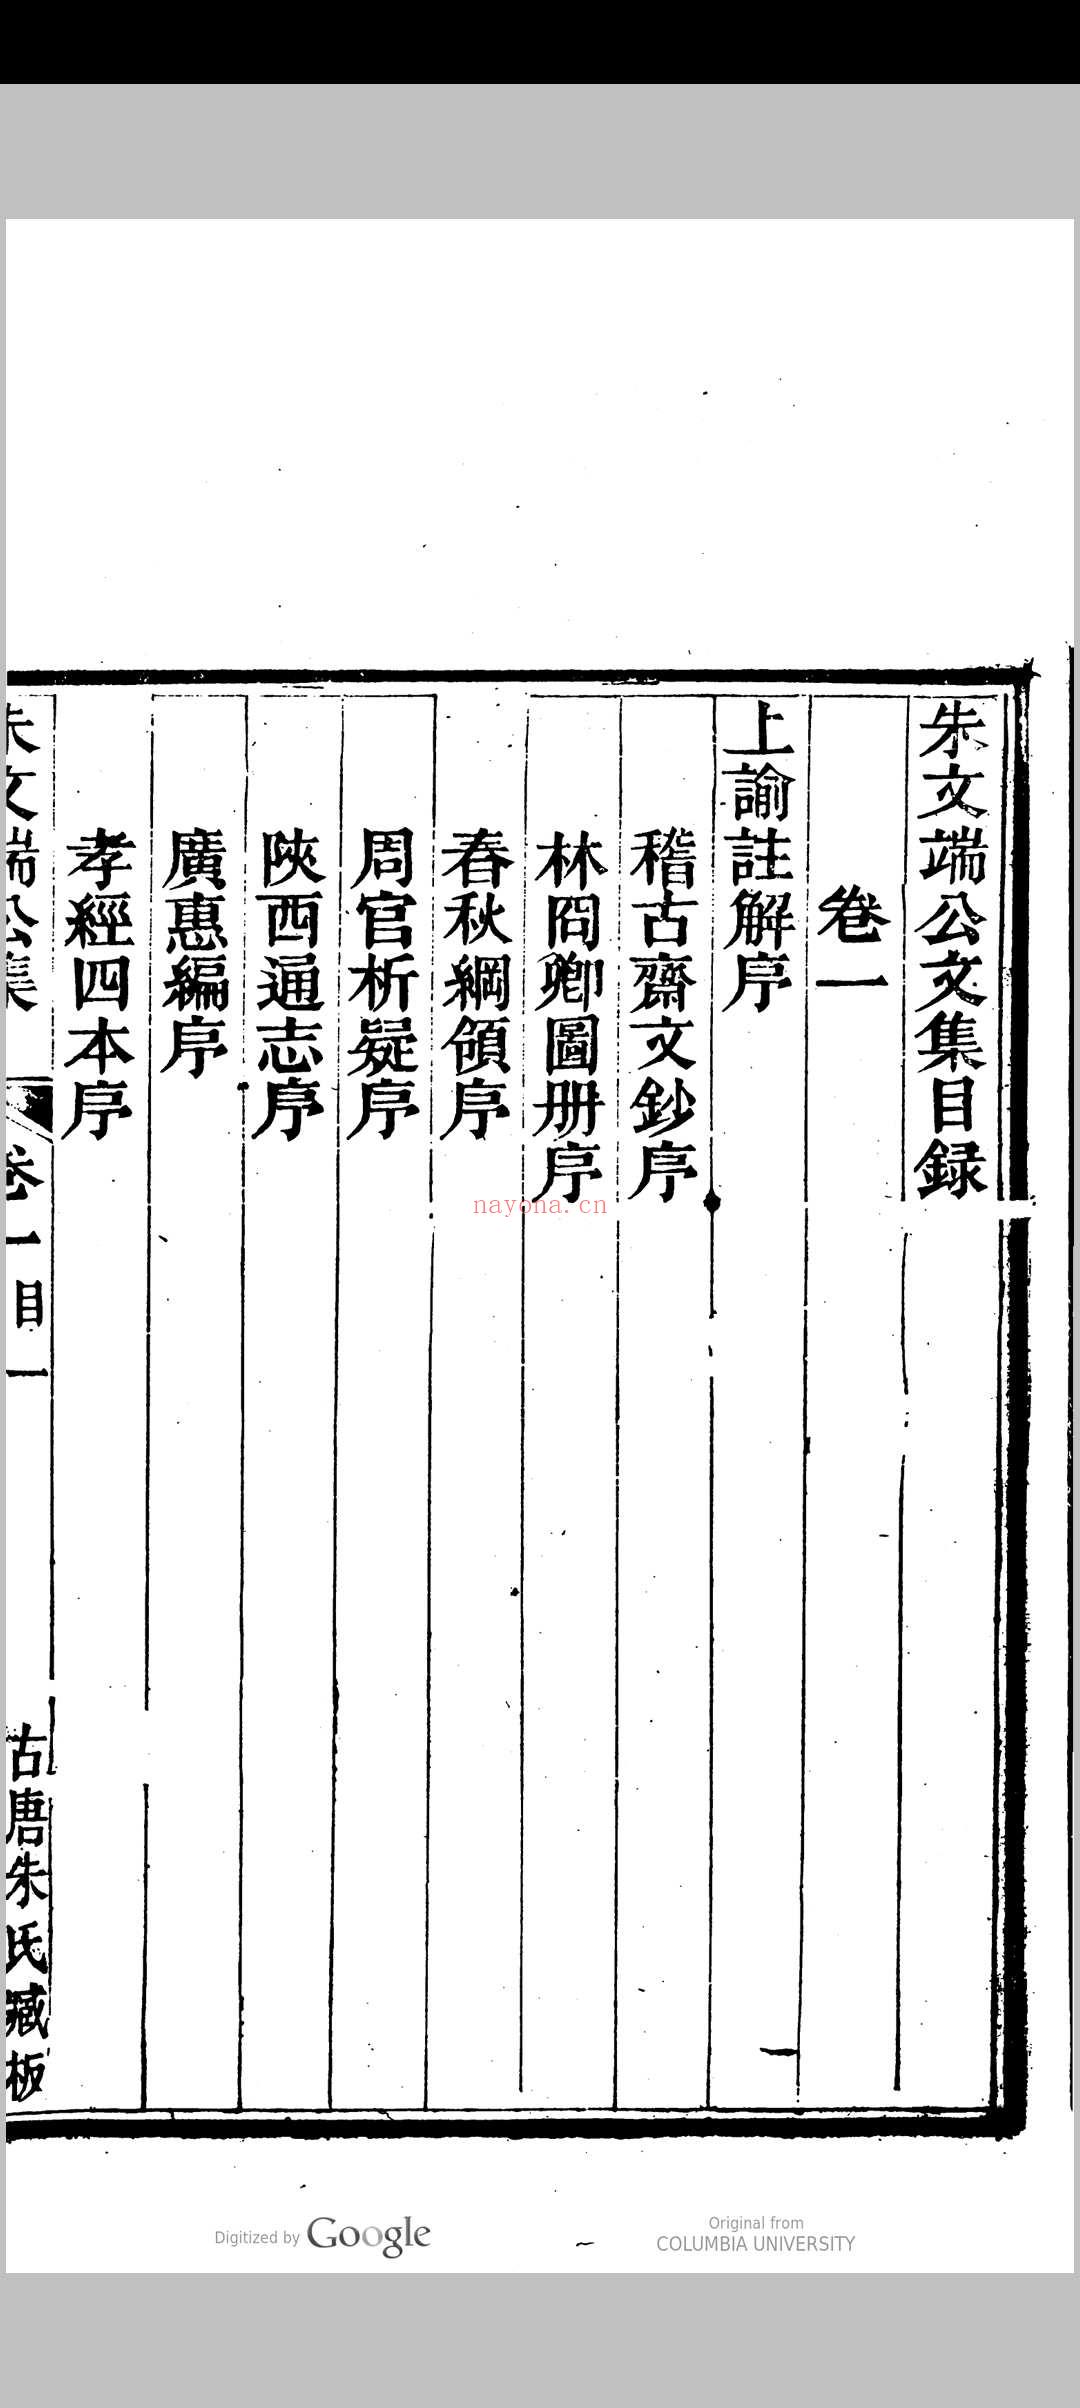 朱文端公文集目録
卷一
上諭註解序
稽古齋文鈔序
林冏卿圖册序
春秋綱領序
周官析疑序
陝西通志序
廣惠編序
孝經四本序
朱文端公集 卷一目 一 古唐朱氏藏板
nayona.cn
Digitized by Google
Original from
COLUMBIA UNIVERSITY